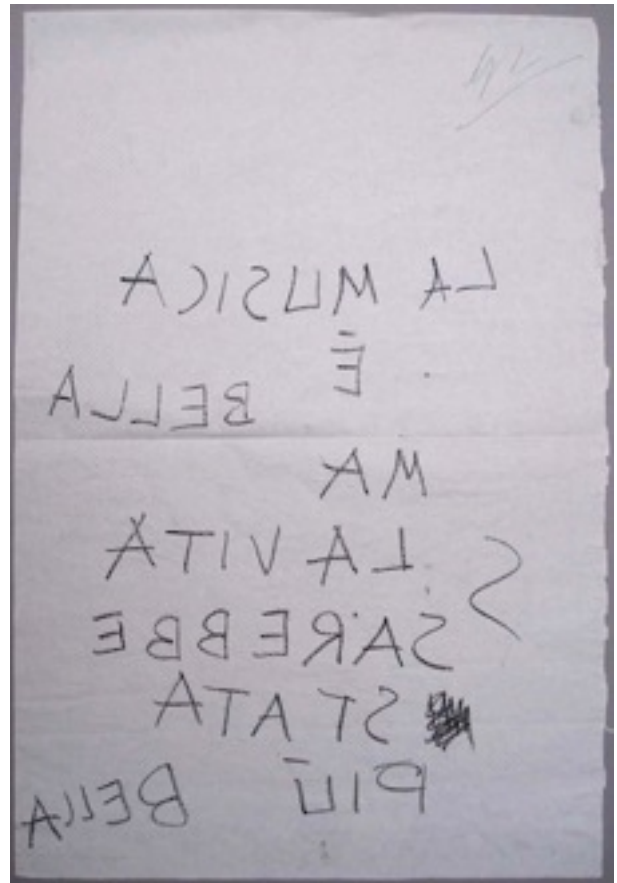 LA MUSICA
É
BELLA
MA
LA VITA
SAREBBE
STATA
PIÙ BELLA